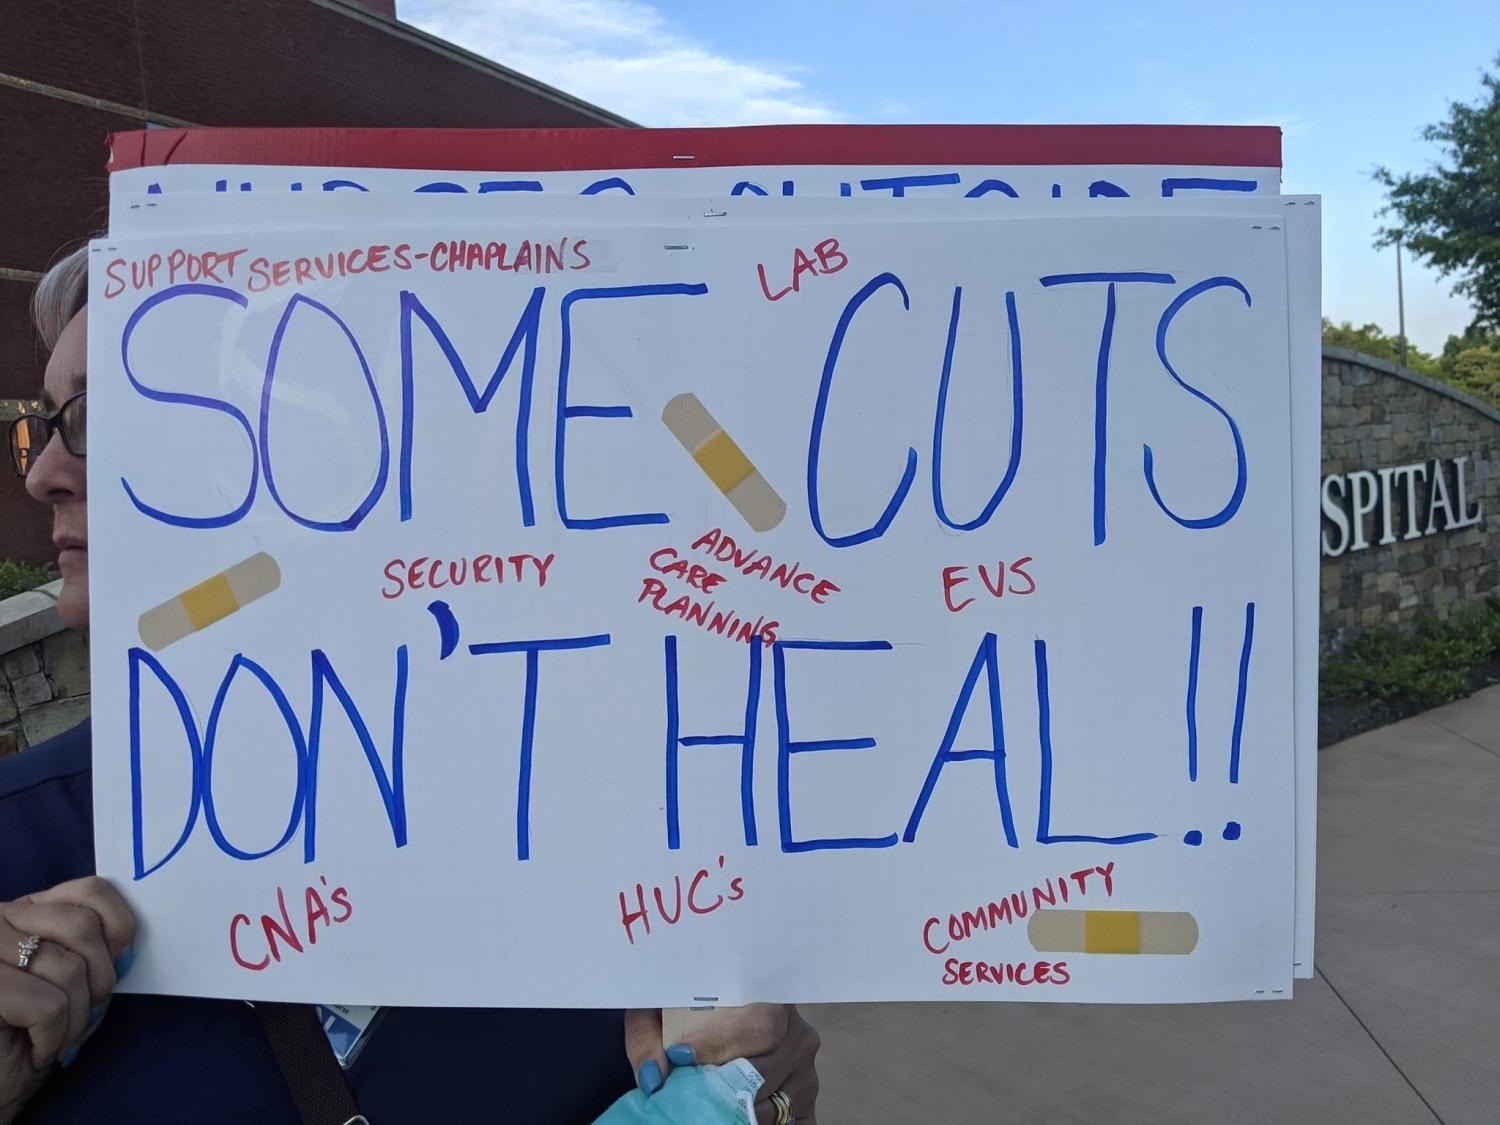 SUPPORT SERVICES-CHAPLAINS
LAB
SOME CUTS
SECURITY
ADVANCE
CARE
PLANNING
EVS
DON'T HEAL!!
CNA's
HUC's
COMMUNITY
SERVICES
SPITAL